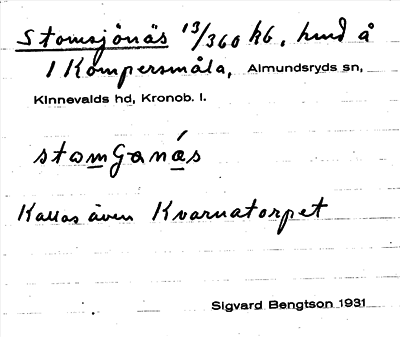 Stomsjönäs 13/360 hb. hmd å
1 Kompersmåla, Almundsryds sn,
Kinnevalds hd, Kronob. l.
stomganás
Kallas även Kvarnatorpet
Sigvard Bengtson 1931